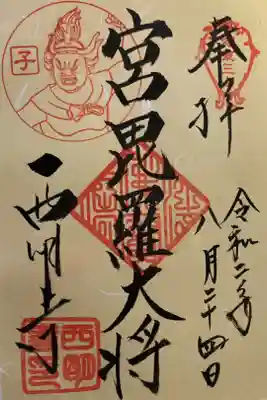 奉拝
令和二年
八月二十四日
宮毘羅大将
西明寺
子
西明